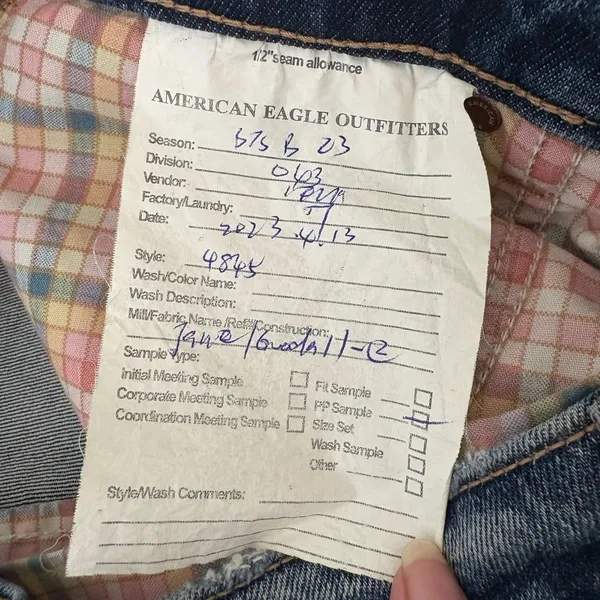 1/2"seam allowance
AMERICAN EAGLE OUTFITTERS
Season: BTS B 23
Division: 043
Vendor:
Factory/Laundry:
Date: 2023.4.13
Style: 4845
Wash/Color Name:
Wash Description:
Mill/Fabric Name /Ref#/Construction:
Sample Type:
Initial Meeting Sample
Corporate Meeting Sample
Coordination Meeting Sample
Fit Sample
PP Sample
Size Set
Wash Sample
Other
Style/Wash Comments: